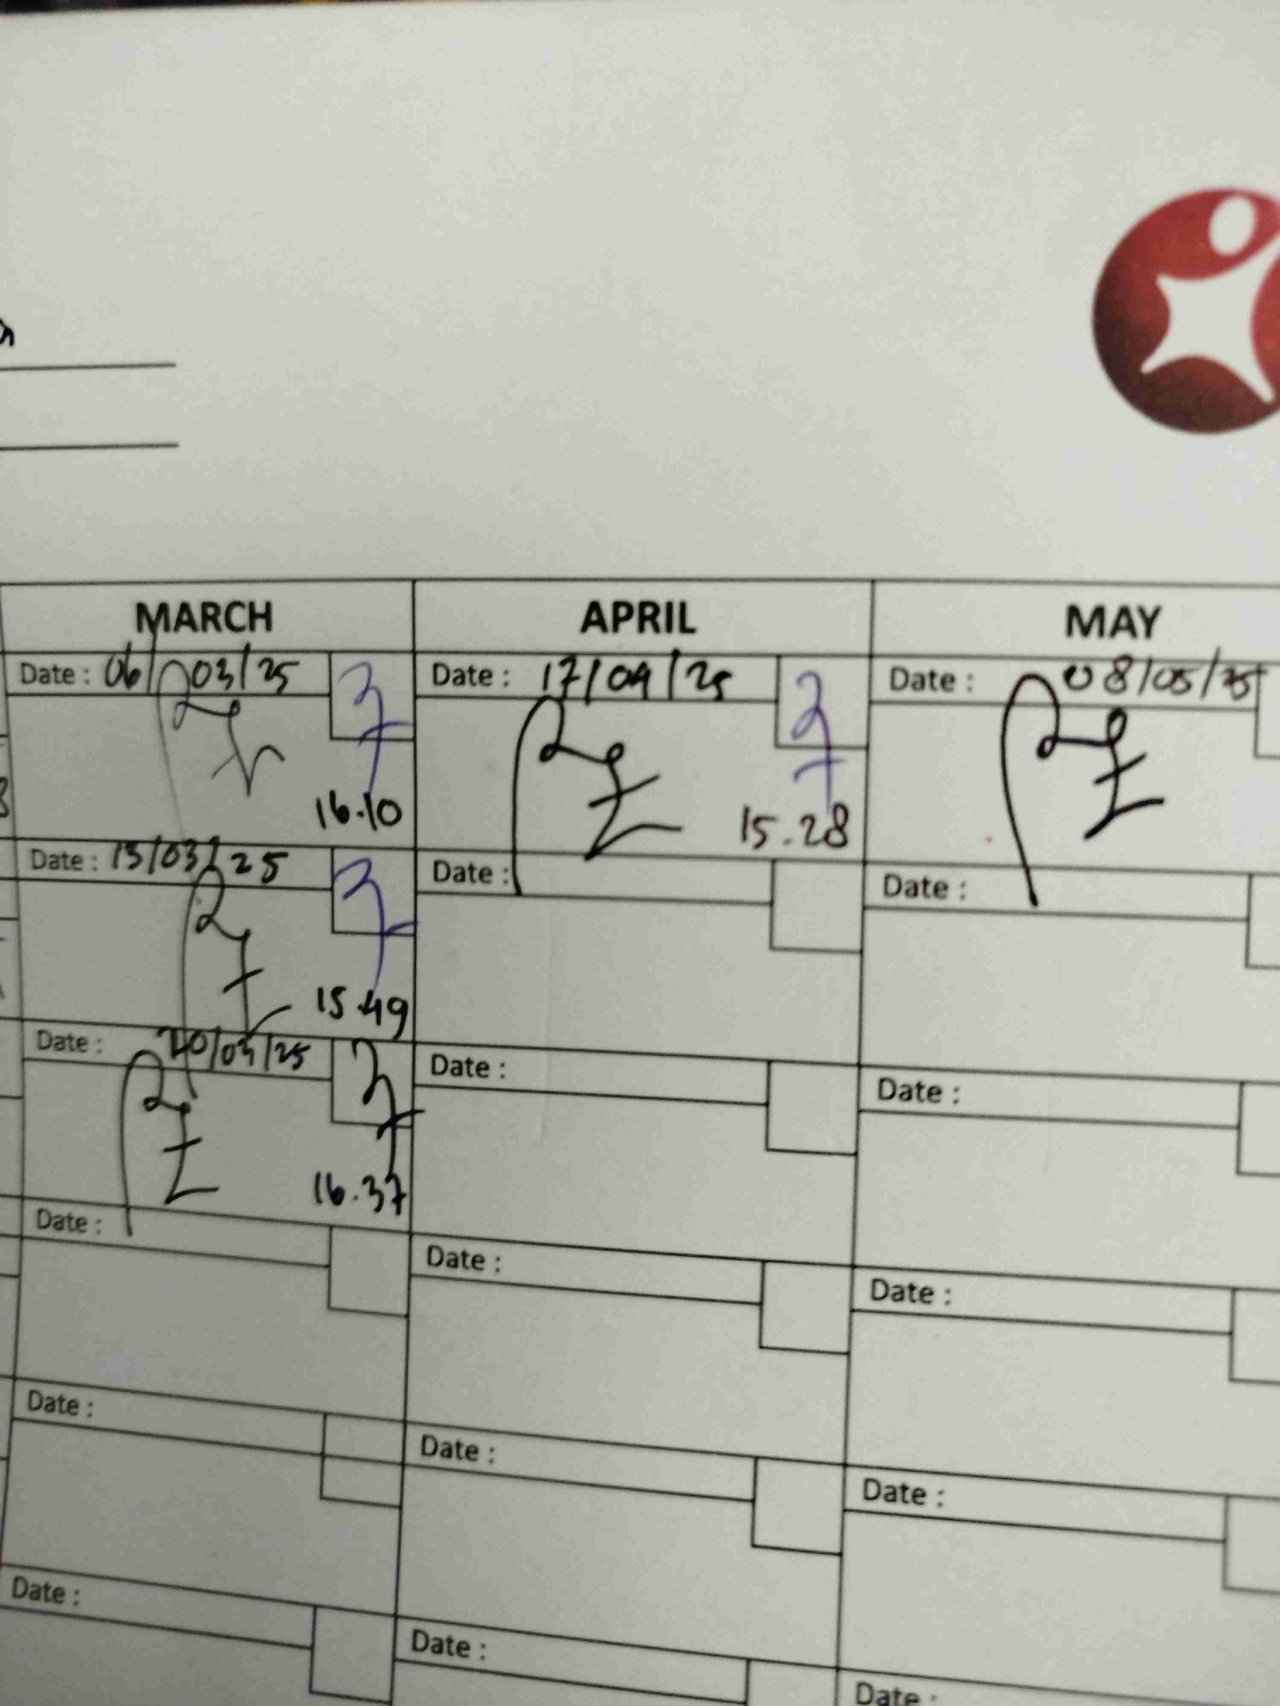 MARCH APRIL MAY
Date : 06/03/25 Date : 17/04/25 Date : 08/05/25
16.10 15.28
Date : 13/03/25 Date : Date :
15.49
Date : 20/03/25 Date : Date :
16.37
Date : Date : Date :
Date : Date : Date :
Date : Date : Date :